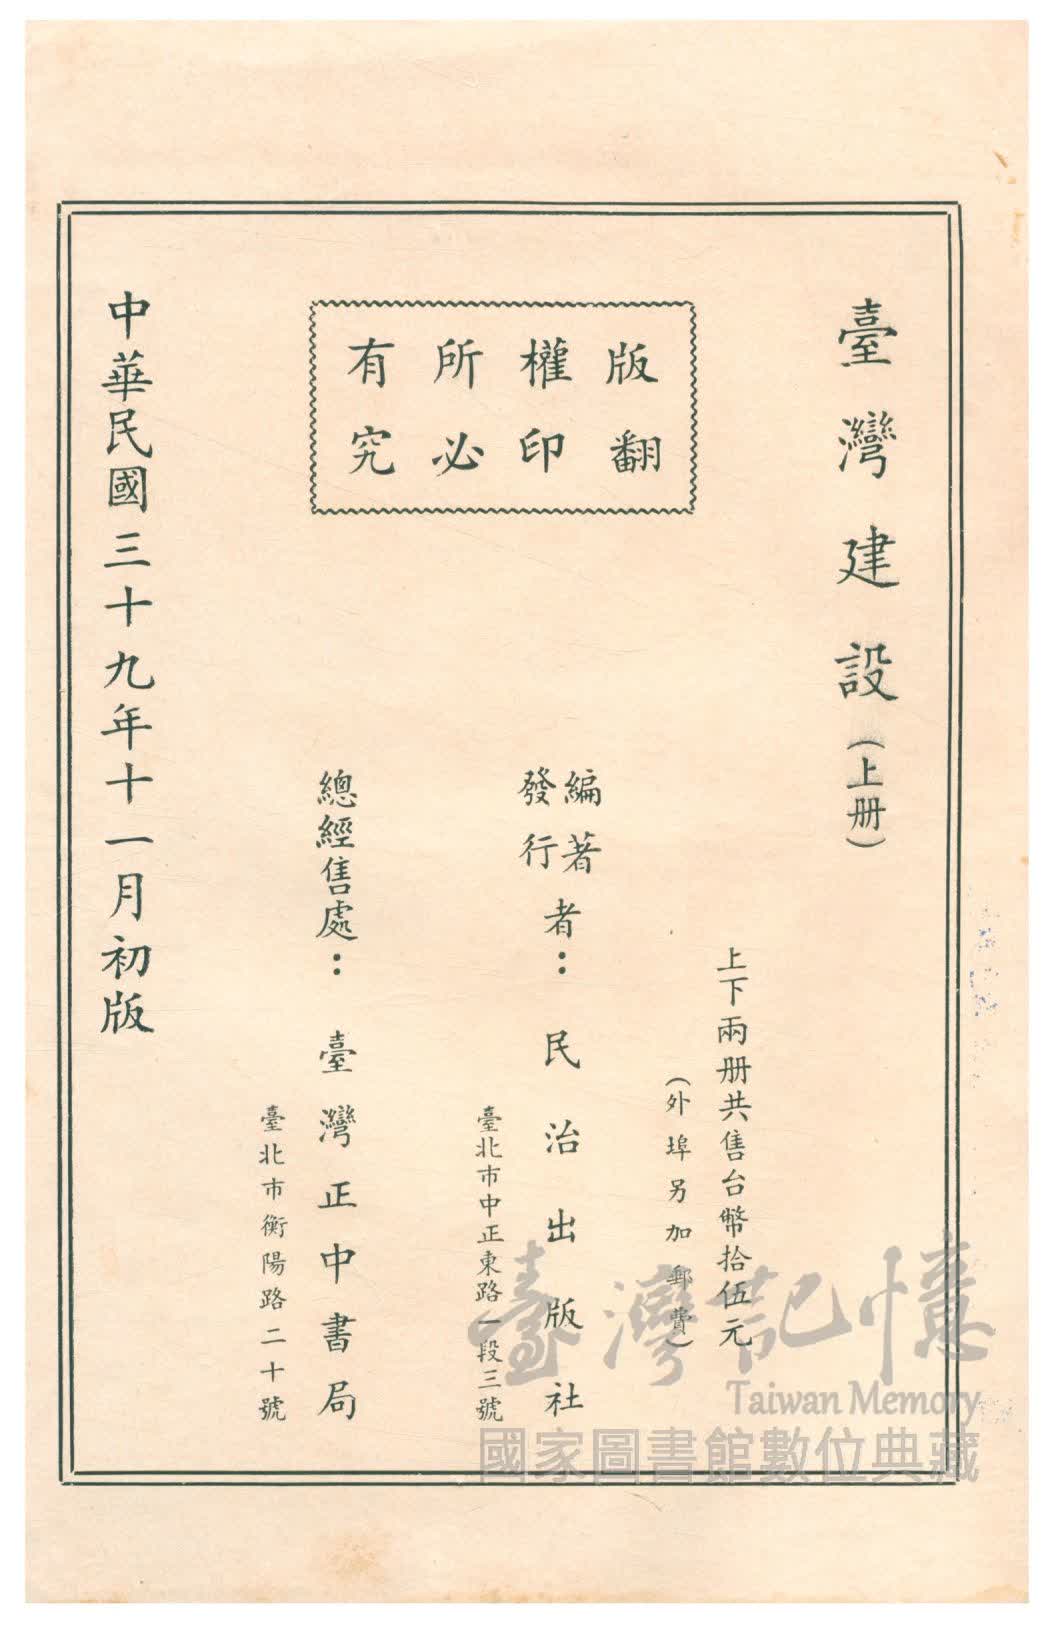 臺灣建設(上册)
上下兩册共售台幣拾伍元
(外埠另加郵費)
版權所有
翻印必究
編著
發行
者：民治出版社
臺北市中正東路一段三號
總經售處：臺灣正中書局
臺北市衡陽路二十號
中華民國三十九年十一月初版
臺灣記憶
Taiwan Memory
國家圖書館數位典藏